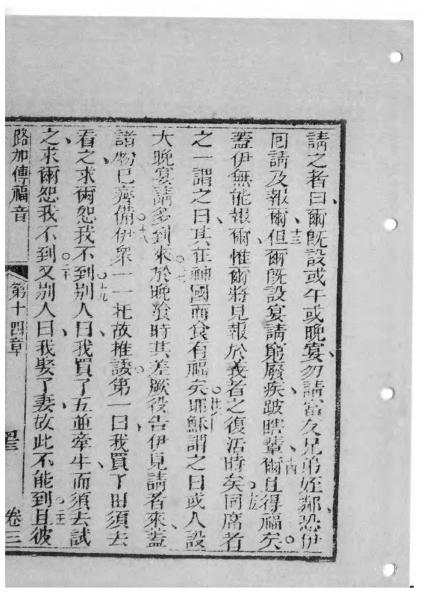 請之者曰爾既設或午或晚宴勿請富友兄弟姪鄰恐伊
囘請及報爾十三但爾既設宴請窮廢疾跛瞎輩十四爾且得福矣
蓋伊無能報爾惟爾將見報於義者之復活時矣十五同席者
之一謂之曰其在神國而食有福矣十六耶穌謂之曰或人設
大晚宴請多到來十七於晚飡時其差厥役告伊見請者來蓋
諸物已齊備十八伊眾一一托故推諉第一曰我買了田須去
看之求爾恕我不到十九別人曰我買了五並牽牛而須去試
之求爾恕我不到二十又別人曰我娶了妻故此不能到二十一且彼
路加傳福音 第十四章 卷三